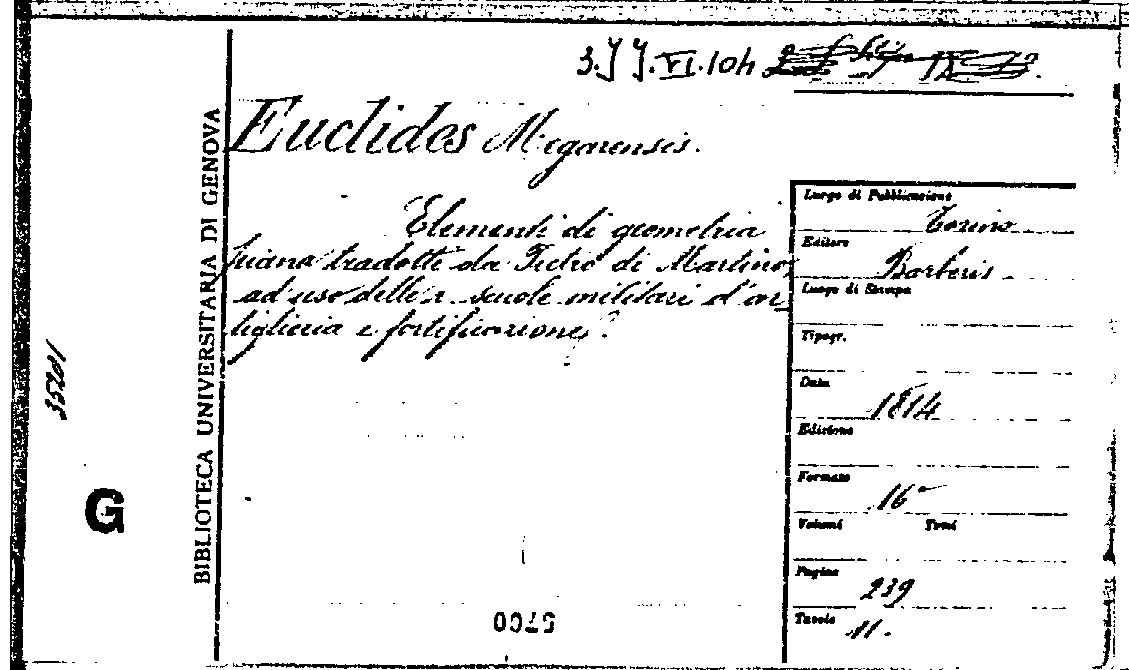 3.YY.VI.104
Euclides Megarensis.
Elementi di geometria
piana tradotti da Pietro di Martino,
ad uso delle r. scuole militari d'ar_
tiglieria e fortificazione.
BIBLIOTECA UNIVERSITARIA DI GENOVA
35201
G
Luogo di Pubblicazione
Torino
Editore
Barberis
Luogo di Stampa
Tipogr.
Data
1814
Edizione
Formato
16°
Volumi Tomi
Pagine
239
Tavole
11.